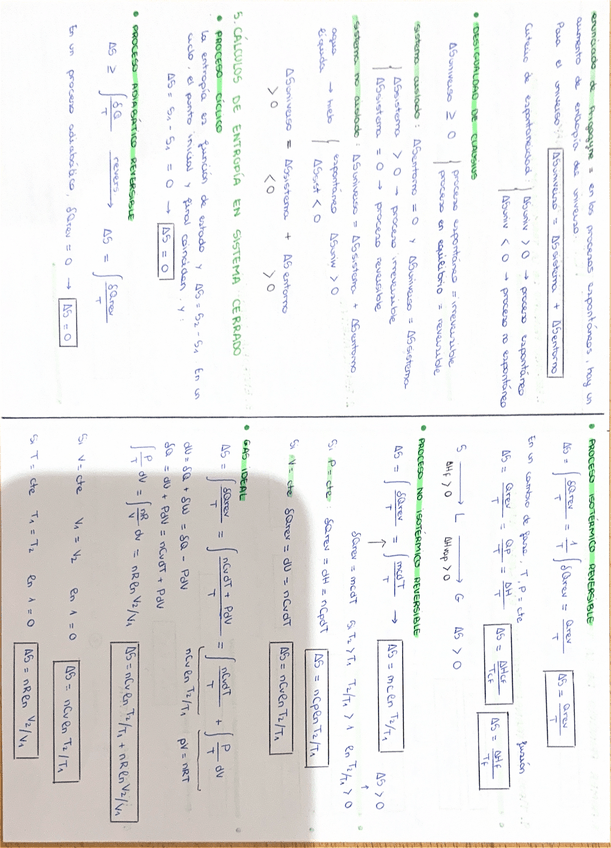 enunciado de Kragoyne = en los procesos espontáneos, hay un
aumento de entropía del universo.
Para el universo: ΔSuniverso = ΔSsistema + ΔSentorno
Criterio de espontaneidad { ΔSuniv > 0 → proceso espontáneo
ΔSuniv < 0 → proceso no espontáneo
• DESIGUALDAD DE CLAUSIUS
ΔSuniverso ≥ 0 { proceso espontáneo = irreversible
proceso en equilibrio = reversible
sistema aislado: ΔSentorno = 0 y ΔSuniverso = ΔSsistema
{ ΔSsistema > 0 → proceso irreversible
ΔSsistema = 0 → proceso reversible
sistema no aislado: ΔSuniverso = ΔSsistema + ΔSentorno
agua líquida → hielo { espontáneo ΔSuniv > 0
ΔSsist < 0
ΔSuniverso = ΔSsistema + ΔSentorno
> 0 < 0 > 0
5. CÁLCULOS DE ENTROPÍA EN SISTEMA CERRADO
• PROCESO CÍCLICO
la entropía es función de estado y ΔS = S2 - S1 En un
ciclo, el punto inicial y final coinciden, y:
ΔS = S1 - S1 = 0 → ΔS = 0
• PROCESO ADIABÁTICO REVERSIBLE
ΔS ≥ ∫ δQ/T revers → ΔS = ∫ δQrev/T
En un proceso adiabático, δQrev = 0 → ΔS = 0
• PROCESO ISOTÉRMICO REVERSIBLE
ΔS = ∫ δQrev/T = 1/T ∫ δQrev = Qrev/T ΔS = Qrev/T
En un cambio de fase, T, P = cte fusión
ΔS = Qrev/T = QP/T = ΔH/T ΔS = ΔHCF/TCF ΔS = ΔHf/Tf
S → L → G ΔS > 0
ΔHf > 0 ΔHvap > 0
• PROCESO NO ISOTÉRMICO REVERSIBLE
ΔS = ∫ δQrev/T = ∫ mcdT/T → ΔS = mc ln T2/T1 ΔS > 0
δQrev = mcdT Si T2 > T1 T2/T1 > 1 ln T2/T1 > 0
Si P = cte: δQrev = dH = nCpdT ΔS = nCp ln T2/T1
Si V = cte δQrev = dU = nCvdT ΔS = nCv ln T2/T1
• GAS IDEAL
ΔS = ∫ δQrev/T = ∫ nCvdT + PdV/T = ∫ nCvdT/T + ∫ P/T dV
dU = δQ + δW = δQ - PdV nCv ln T2/T1 PV = nRT
δQ = dU + PdV = nCvdT + PdV
∫ P/T dV = ∫ nR/V dV = nR ln V2/V1 ΔS = nCv ln T2/T1 + nR ln V2/V1
Si V = cte V1 = V2 ln 1 = 0 ΔS = nCv ln T2/T1
Si T = cte T1 = T2 ln 1 = 0 ΔS = nR ln V2/V1